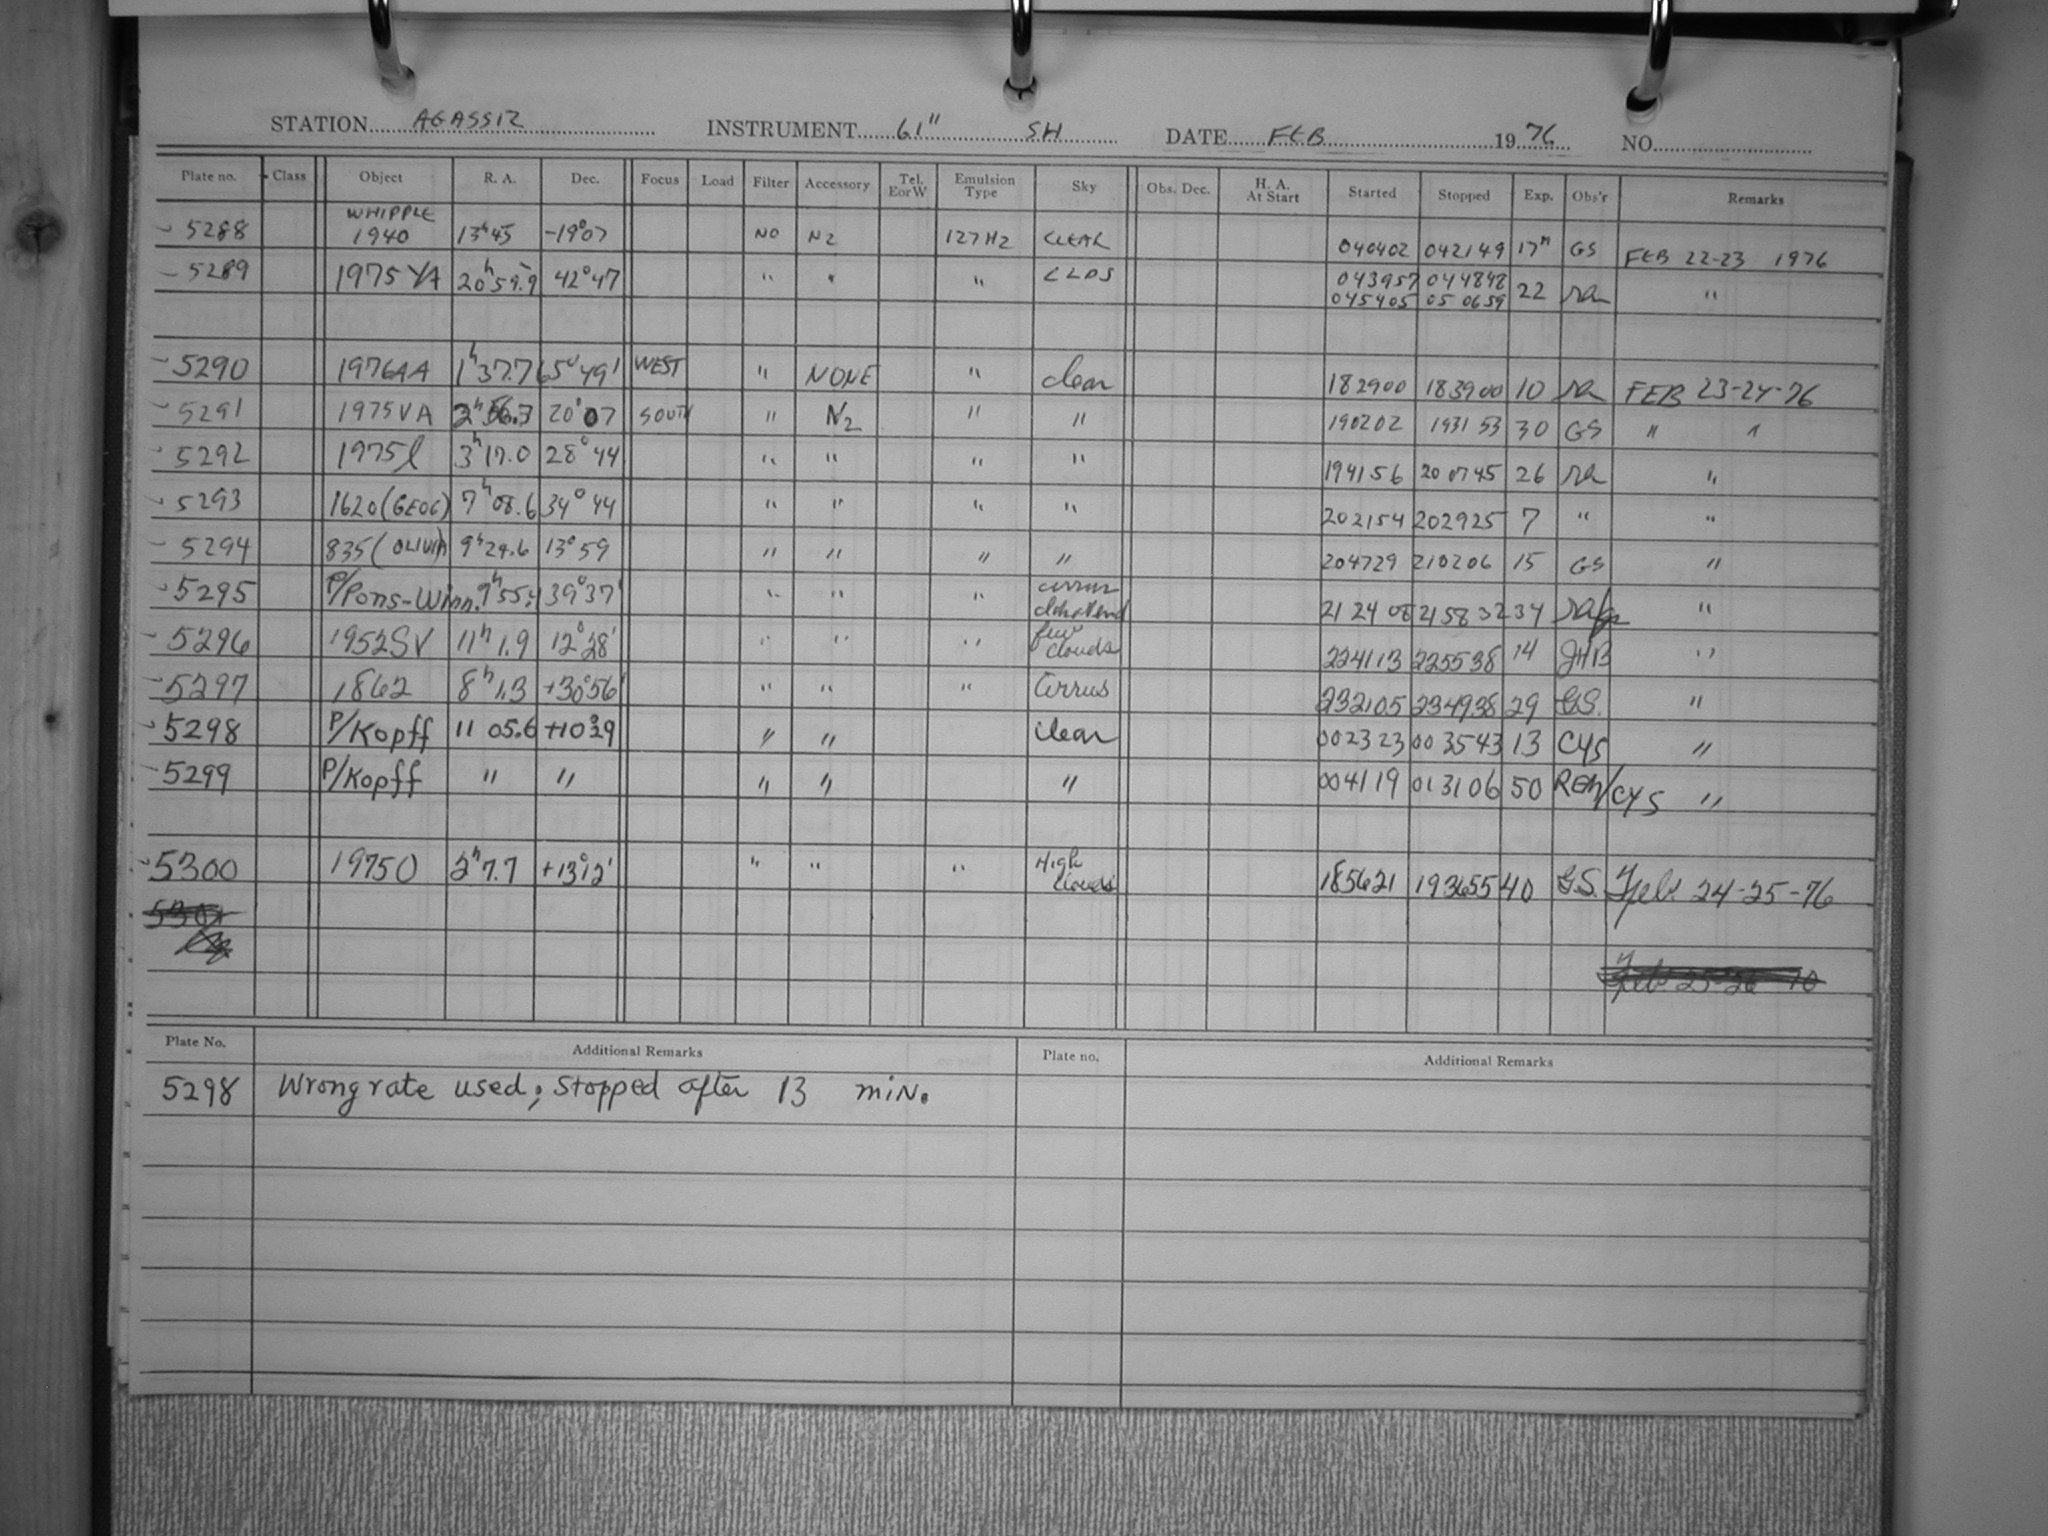 STATION AGASSIZ INSTRUMENT 61" SH DATE FEB 1976 NO
Plate no. Class Object R. A. Dec. Focus Load Filter Accessory Tel. E or W Emulsion Type Sky Obs. Dec. H. A. At Start Started Stopped Exp. Obs'r Remarks
5288 WHIPPLE 1940 13h45 -19°07 NO N2 127H2 CLEAR 040402 042149 17m GS FEB 22-23 1976
5289 1975 YA 20h59.9 42°47 " " " CLDS 043957 044848 22 "
045405 050659
5290 1976AA 1h37.7 65°49' WEST " NONE " clear 182900 183900 10 FEB 23-24-76
5291 1975VA 2h56.3 20°07 SOUTH " N2 " " 190202 193153 30 GS " "
5292 1975l 3h17.0 28°44 " " " " 194156 200745 26 "
5293 1620(GEOG) 7h08.6 34°44 " " " " 202154 202925 7 " "
5294 835(OLIVIA) 9h24.6 13°59 " " " " 204729 210206 15 GS "
5295 P/Pons-Winn. 9h55.4 39°37' " " " cirrus 212408 215832 34 "
5296 1952SV 11h1.9 12°28' " " " few clouds 224113 225538 14 JHB "
5297 1862 8h1.3 +30°56' " " " Cirrus 232105 234938 29 G.S. "
5298 P/Kopff 11 05.6 +10°39 " " clear 002323 003543 13 CYS "
5299 P/Kopff " " " " " 004119 013106 50 REM/CYS "
5300 1975O 2h7.7 +13°12' " " " High clouds 185621 193655 40 G.S. Feb. 24-25-76
Plate No. Additional Remarks Plate no. Additional Remarks
5298 Wrong rate used; stopped after 13 min.